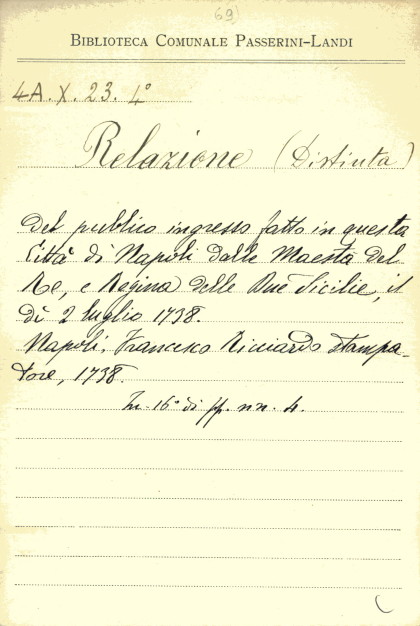 69)
BIBLIOTECA COMUNALE PASSERINI-LANDI
4A. X. 23. 4°
Relazione (Distinta)
Del publico ingresso fatto in questa
Città di Napoli dalle Maestà del
Re, e Regina delle Due Sicilie, il
dì 2 luglio 1738.
Napoli, Francesco Ricciardo stampa-
tore, 1738.
In-16° di pp. nn. 4.